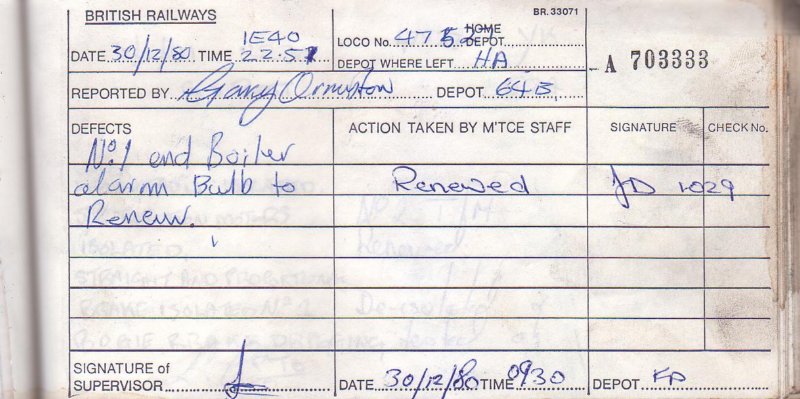 BRITISH RAILWAYS BR. 33071
1E40
DATE 30/12/80 TIME 22.57
LOCO No. HOME DEPOT
DEPOT WHERE LEFT HA
A 703333
REPORTED BY Gary Ormiston DEPOT 64B
DEFECTS ACTION TAKEN BY M'TCE STAFF SIGNATURE CHECK No.
No.1 end Boiler
alarm Bulb to Renewed JD 1029
Renew.
SIGNATURE of
SUPERVISOR DATE 30/12/80 TIME 0930 DEPOT